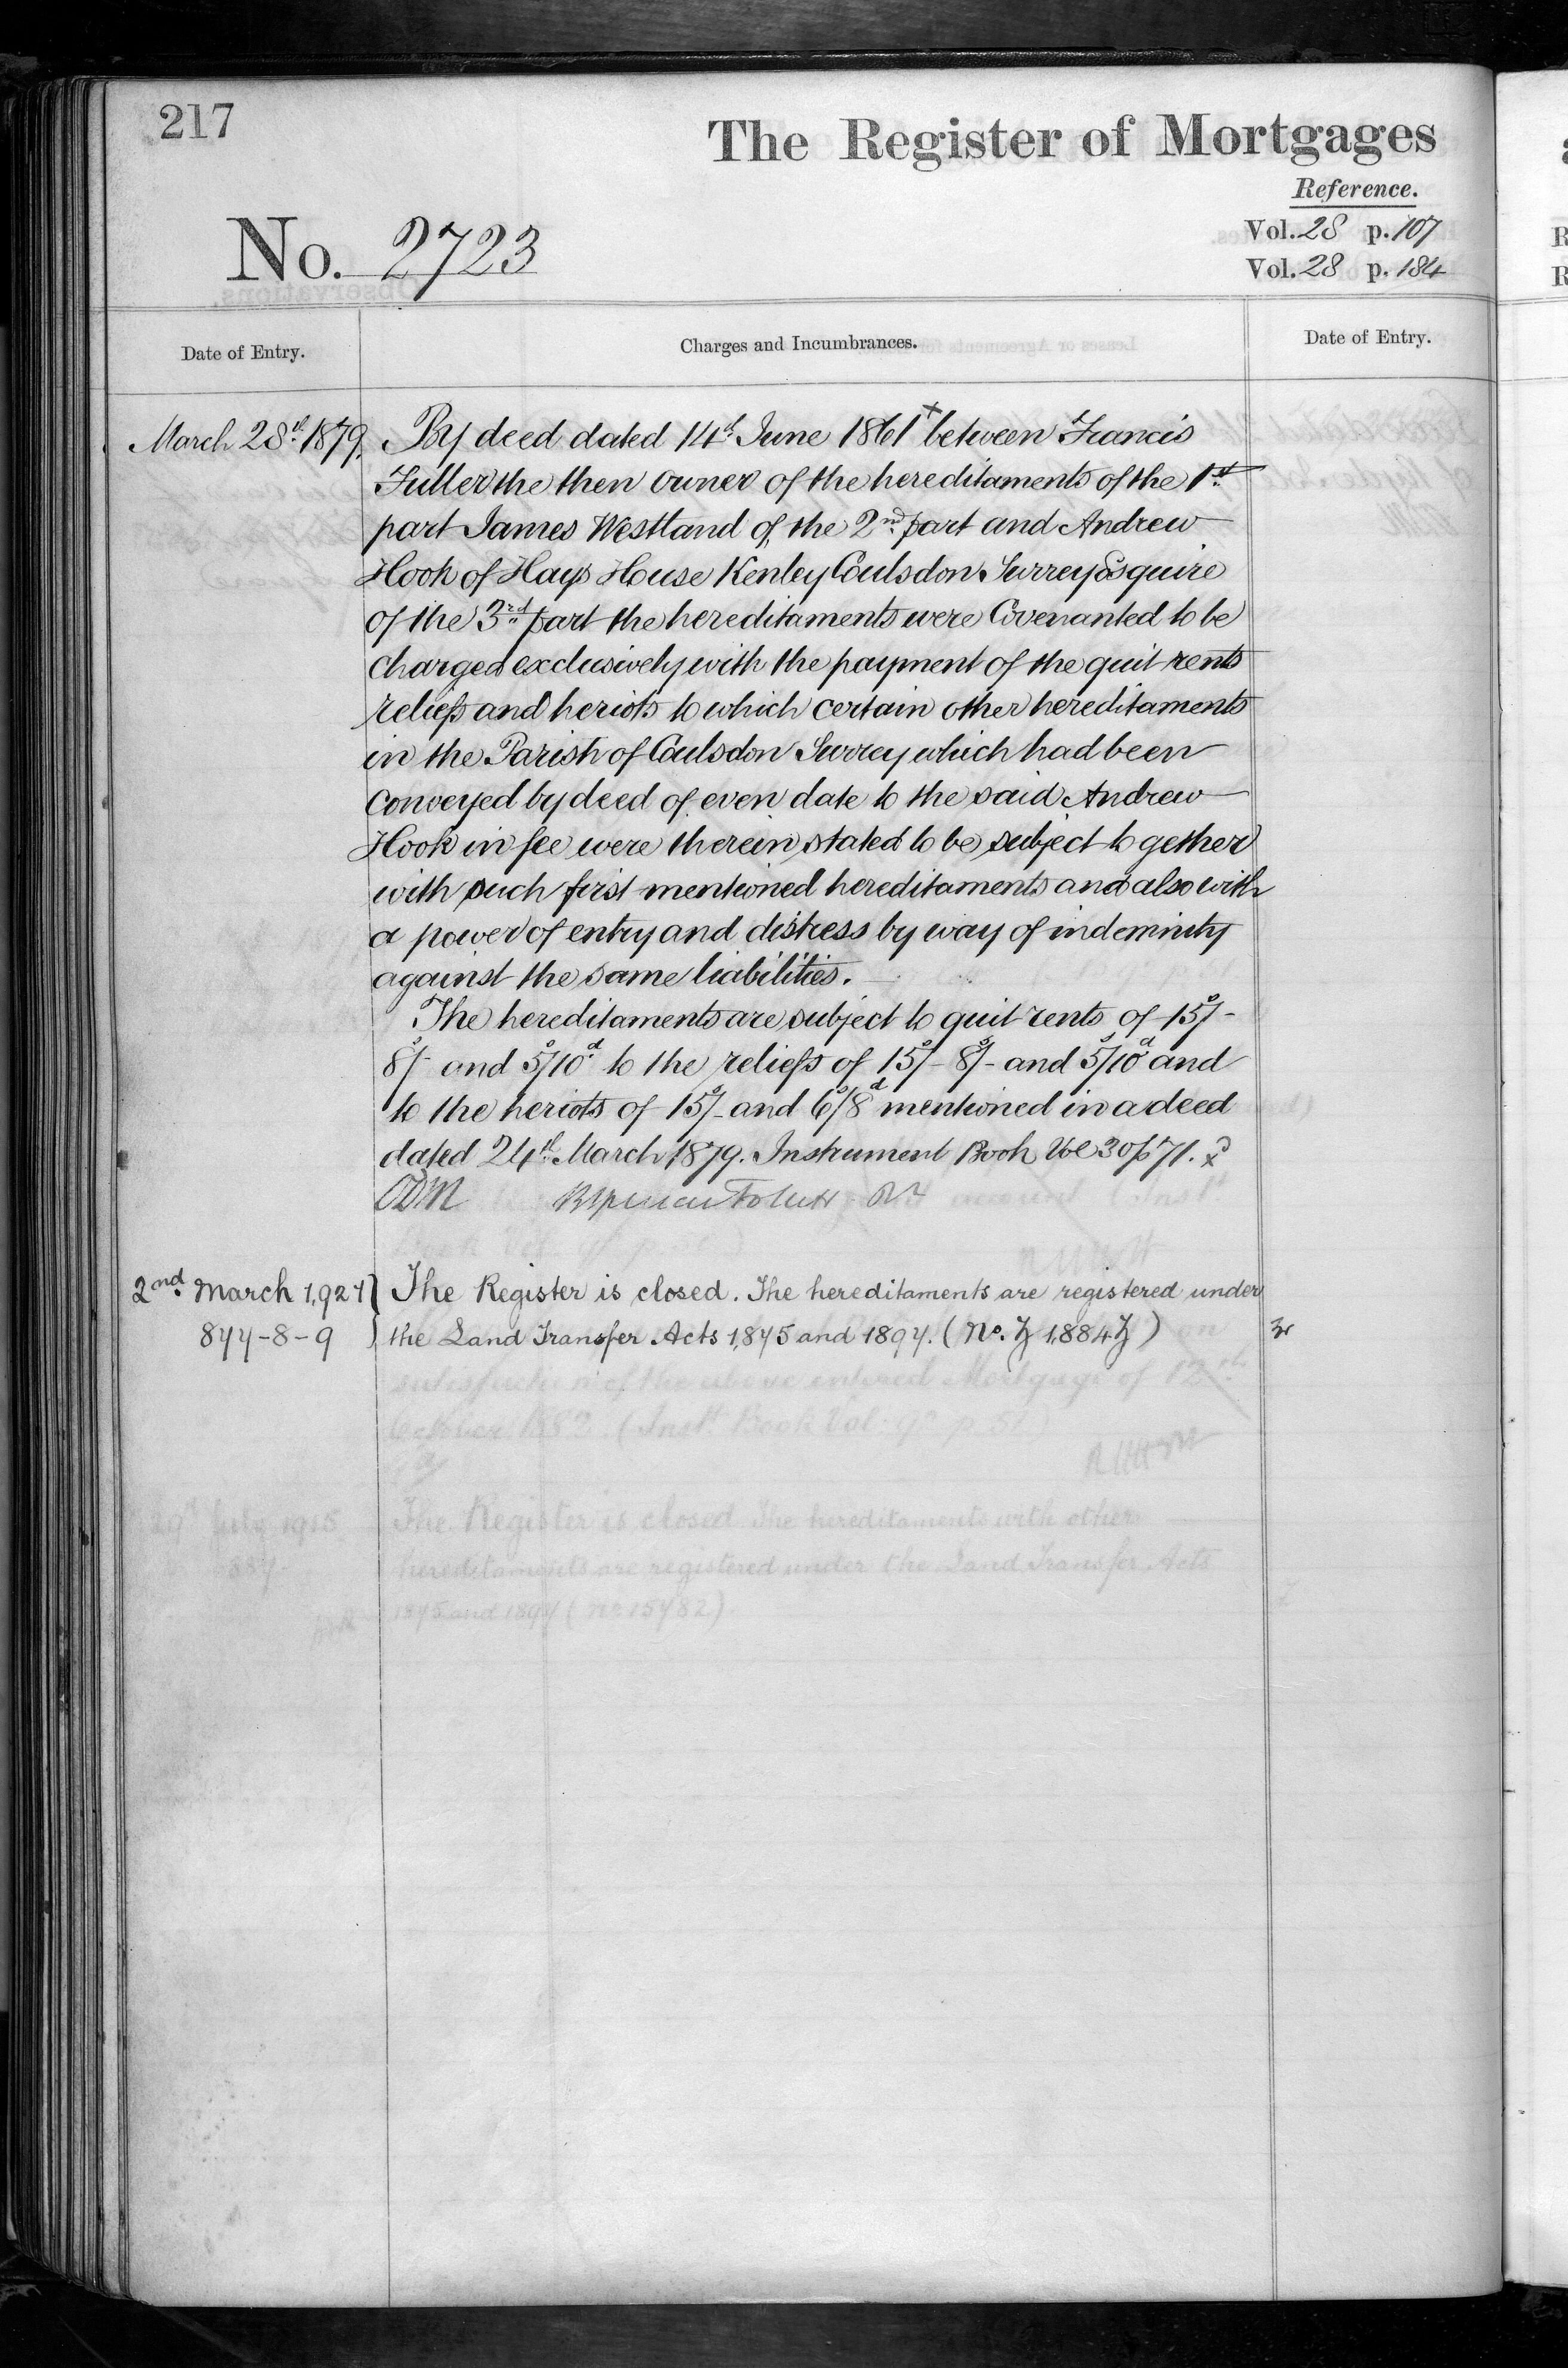 217
The Register of Mortgages
Reference.
No. 2723
Vol. 28 p. 107
Vol. 28 p. 184
Date of Entry.
Charges and Incumbrances.
Date of Entry.
March 28th 1879.
By deed dated 14th June 1861 x between Francis
Fuller the then owner of the hereditaments of the 1st
part James Westland of the 2nd part and Andrew
Hook of Hays House Kenley Coulsdon Surrey Esquire
of the 3rd part the hereditaments were Covenanted to be
charged exclusively with the payment of the quit rents
reliefs and heriots to which certain other hereditaments
in the Parish of Coulsdon Surrey which had been
Conveyed by deed of even date to the said Andrew
Hook in fee were therein stated to be subject to gether
with such first mentioned hereditaments and also with
a power of entry and distress by way of indemnity
against the same liabilities.
The hereditaments are subject to quit rents of 15s/-
8s/- and 5s/10d to the reliefs of 15s/- 8s/- and 5s/10d and
to the heriots of 15s/- and 6s/8d mentioned in a deed
dated 24th March 1879. Instrument Book Vol 30 p 71.
2nd March 1,927
877-8-9
The Register is closed. The hereditaments are registered under
the Land Transfer Acts 1,875 and 1897. (No. 1,884)
satisfaction of the above entered Mortgage of 12th
October 1882. (Inst. Book Vol.
29th July 1915
887-
The Register is closed The hereditaments with other
hereditaments are registered under the Land Transfer Acts
1875 and 1897 (No 15782)